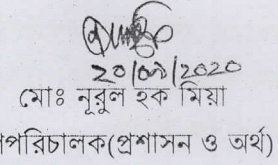 20/09/2020
মোঃ নূরুল হক মিয়া
পরিচালক(প্রশাসন ও অর্থ)